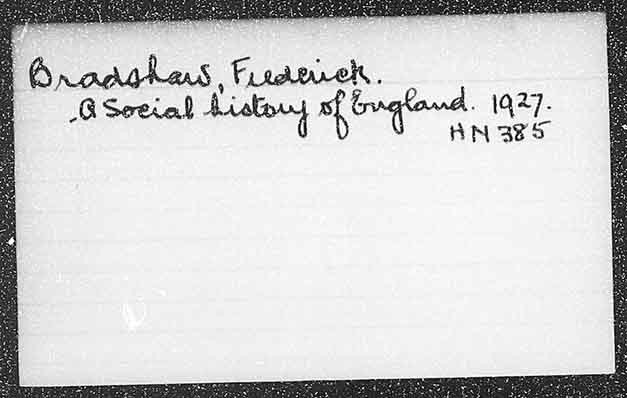 Bradshaw, Frederick.
A Social history of England. 1927.
HN 385